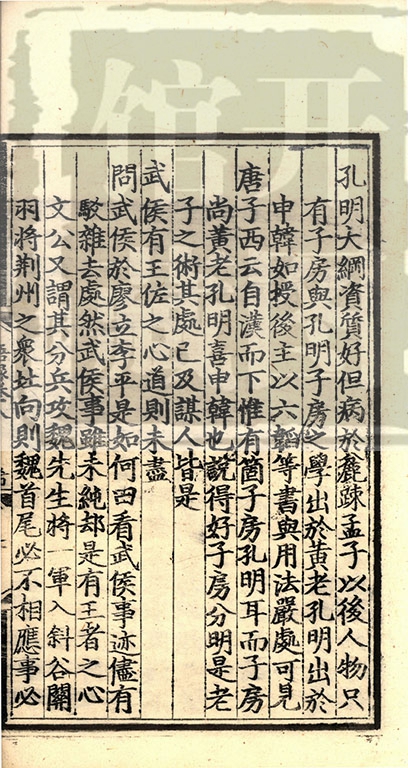 孔明大綱資質好但病於麄踈孟子以後人物只
有子房與孔明子房之學出於黃老孔明出於
申韓如授後主以六韜等書與用法嚴處可見
唐子西云自漢而下惟有箇子房孔明耳而子房
尚黃老孔明喜申韓也說得好子房分明是老
子之術其處已及謀人皆是
武侯有王佐之心道則未盡
問武侯於廖立李平是如何曰看武侯事迹儘有
駁雜去處然武侯事雖未純却是有王者之心
文公又謂其分兵攻魏先生將一軍入斜谷關
羽將荆州之衆北向則魏首尾必不相應事必